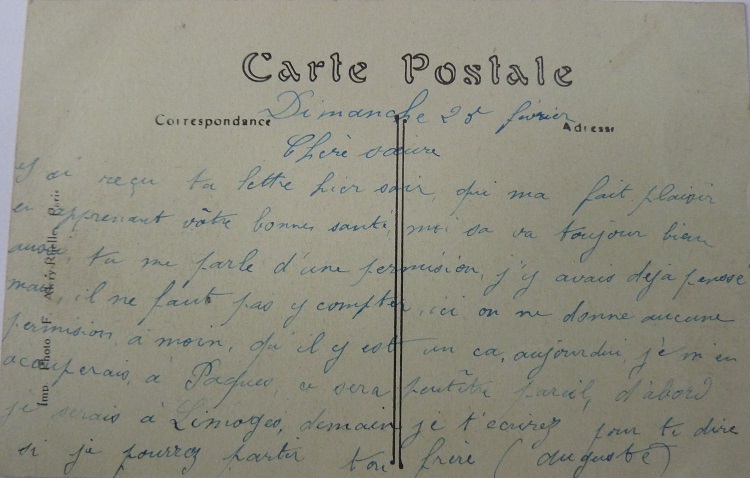 Carte Postale
Correspondance
Adresse
Dimanche 25 février
Chère soeure
J'ai reçu ta lettre hier soir, qui ma fait plaisir
en apprenant vôtre bonne santé, moi sa va toujour bien
aussi, tu me parle d'une permision, j'y avais déja pensé
mais, il ne faut pas y compter, ici on ne donne aucune
permision, a moin, qu'il y est un ca, aujourdui, je m'en
occuperais, a Paques, ce sera peutêtre pareil, d'abord
je serais à Limoges, demain je t'ecrirez pour te dire
si je pourrez partir ton frère (auguste)
Imp. Photo F. Paris